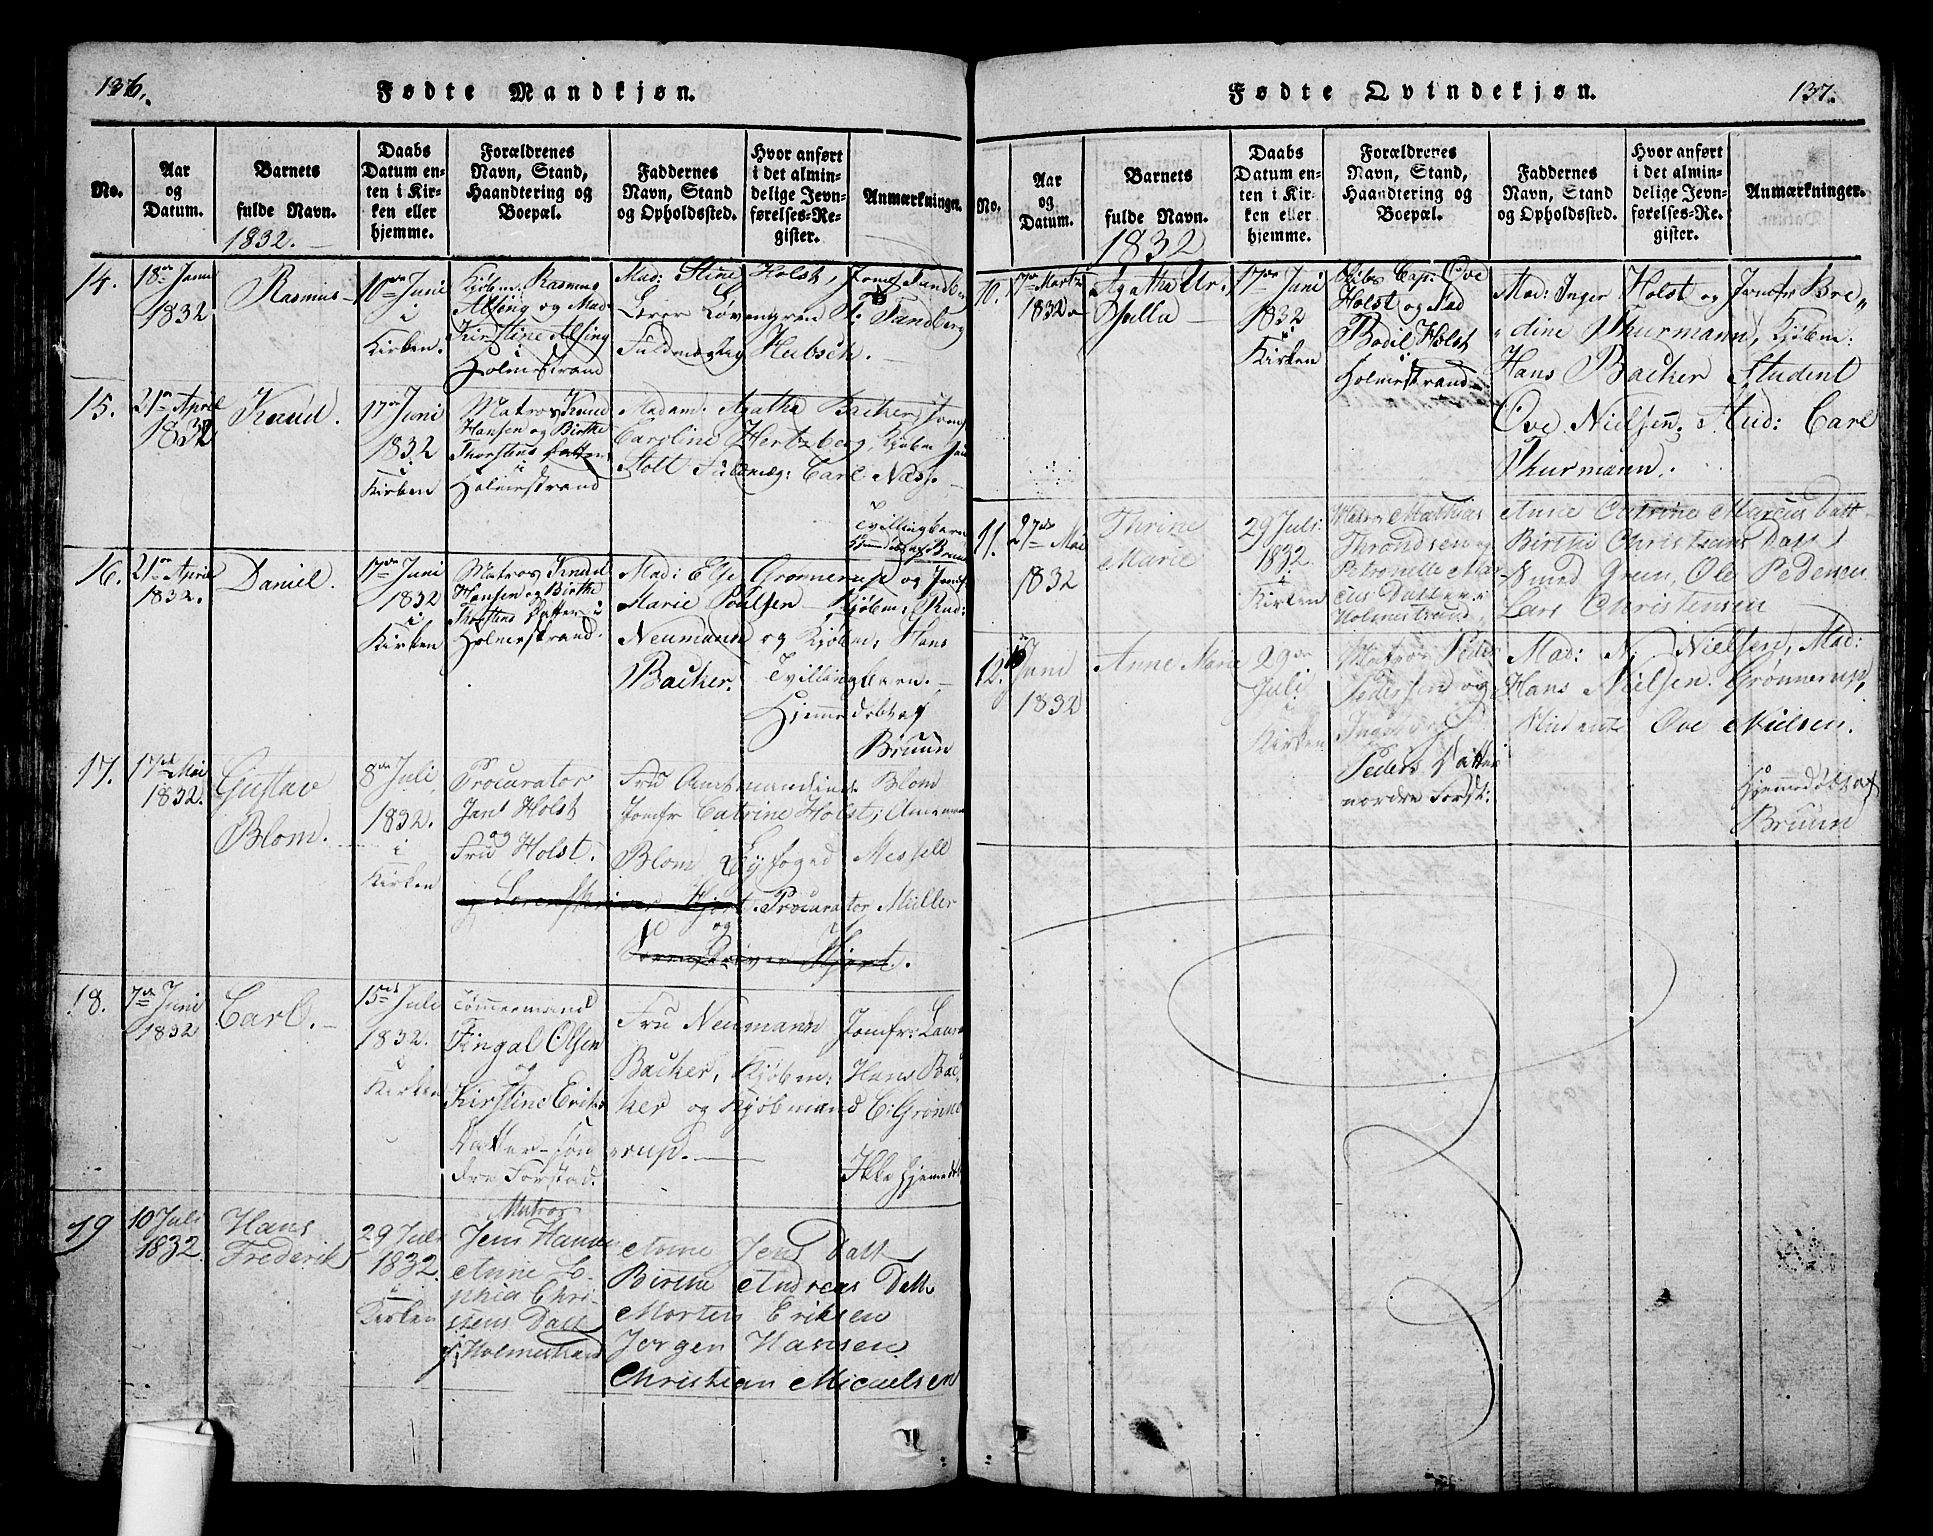 136.
Fødte Mandkjøn.
No.
Aar
og
Datum.
Barnets
fulde Navn.
1832.
Daabs
Datum en-
ten i Kir-
ken eller
hjemme.
Forældrenes
Navn, Stand,
Haandtering og
Boepæl.
Faddernes
Navn, Stand
og Opholdssted.
Hvor anført
i det almin-
delige Jevn-
førelses-Re-
gister.
Anmærkninger.
14.
18de
1832
Rasmus
10de Juni
i
Kirken.
Kjøbm. Rasmus
Alsing og Mad
Kirstine Alsing
i
Holmestrand
Mad: Stine Holst, Jomf Sandberg
Løvengren
Fuldmægtig Hubsch.
15.
21de April
1832
Knud.
17de Juni
1832
i
Kirken
Matros Knud
Hansen og Birthe
Thorstens Datter
i
Holmestrand
Madam Agatha Backer, Jomf
Caroline Hertzberg, Kjøbm
Stolt Fuldmæg: Carl Næss.
Tvillingbarn
Hjemmedøbt af Bruun
16.
21de April
1832.
Daniel.
17de Juni
1832
i
Kirken
Matros Knud
Hansen og Birthe
Thorstens Datter i
Holmestrand.
Mad: Else Grønnerup og Jomf
Marie Poulsen Kjøbm: Rud:
Neumann og Kjøbm: Hans
Backer.
Tvillingbarn.
Hjemmedøbt af
Bruun
17.
17de Mai
1832.
Gustav
Blom.
8de Juli
1832.
i
Kirken
Procurator
Jant Holst
og
Fru Holst.
Fru Amtmandinde Blom
Jomfr Catrine Holst,
Blom Byfoged Messell
Procurator Müller
og
Sorenskriver Hjort.
18.
7de Juni
1832
Carl.
15de Juli
1832.
i
Kirken
Tømmermand
Fingal Olsen
og
Kirstine Eriks
Datter søn
dre Forstad.
Fru Neumann Jomfr: Laura
Backer, Kjøbm: Hans Bac
ker og Kjøbmand C: Grønne
rup.
Ikke hjemmedøbt
19
10 Juli
1832.
Hans
Frederik
29 Juli
1832.
i
Kirken
Matros
Jens Hansen
Anne So-
phia Chri-
stens Datt
i Holmestrand
Anne Jens Datt
Birthe Andreas Datt
Morten Eriksen
Jørgen Hansen
Christian Micaelsen
137.
Fødte Qvindekjøn.
No.
Aar
og
Datum.
Barnets
fulde Navn.
1832
Daabs
Datum en-
ten i Kir-
ken eller
hjemme.
Forældrenes
Navn, Stand,
Haandtering og
Boepæl.
Faddernes
Navn, Stand
og Opholdssted.
Hvor anført
i det almin-
delige Jevn-
førelses-Re-
gister.
Anmærkninger.
10.
17de Marts
1832
Agatha Ur-
sulla
17de Juni
1832
i
Kirken
Skibs Cap: Ove
Holst og Mad
Bodil Holst
i
Holmestrand
Mad: Inger Holst og Jomfr Bre-
dine Thurmann, Kjøbm:
Hans Backer Student
Ove Nielsen, Stud: Carl
Thurmann.
11.
27de Mai
1832
Thrine
Marie
29 Juli
1832.
i
Kirken
Matros Mathias
Throndsen og
Petronelle Mar
cus Datter i
Holmestrand
Anne Catrine Marcus Datt
Birthe Christians Datt
Smed Grun, Ole Pedersen
Lars Christensen
12.
Juni
1832
Anne Marie
29de
Juli
i
Kirken
Matros Peder
Pedersen og
Peders Datter
nordre Forst:
Mad: N. Nielsen, Mad:
Hans Nielsen Grønnerup,
Student Ove Nielsen.
Hjemmedøbt af
Bruun